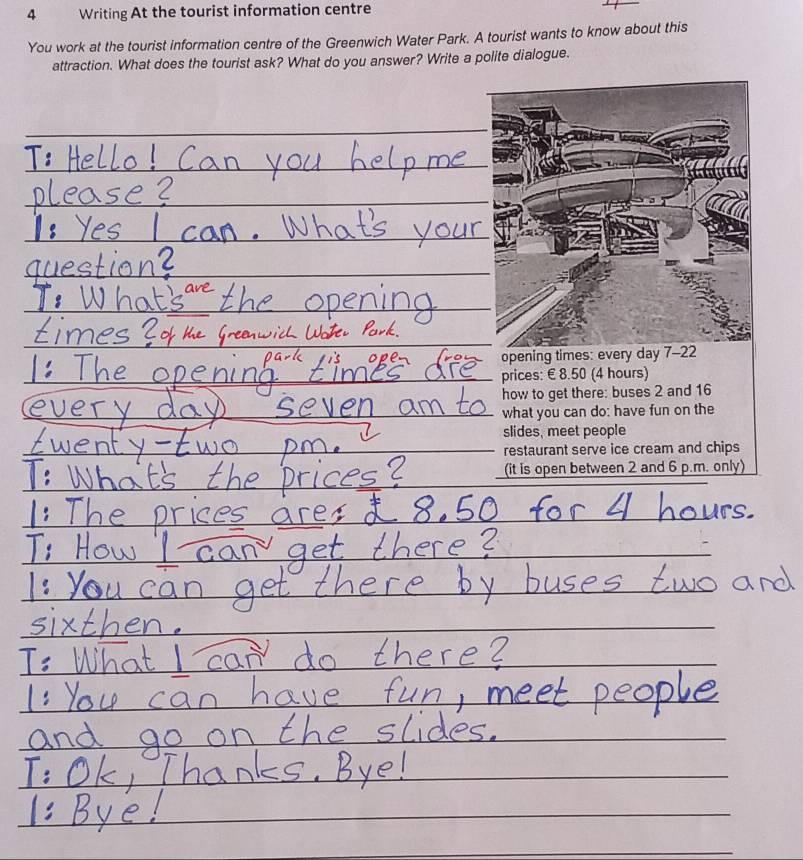 4 Writing At the tourist information centre
You work at the tourist information centre of the Greenwich Water Park. A tourist wants to know about this
attraction. What does the tourist ask? What do you answer? Write a polite dialogue.
T: Hello! Can you help me
please?
I: Yes I can. What's your
question?
are
T: What's the opening
times? of the Greenwich Water Park.
park is open from
I: The opening times are
every day seven am to
twenty-two pm.
opening times: every day 7–22
prices: € 8.50 (4 hours)
how to get there: buses 2 and 16
what you can do: have fun on the
slides, meet people
restaurant serve ice cream and chips
(it is open between 2 and 6 p.m. only)
T: What's the prices?
I: The prices are: £ 8.50 for 4 hours.
T: How I can get there?
I: You can get there by buses two and
sixthen.
T: What I can do there?
I: You can have fun, meet people
and go on the slides.
T: Ok, Thanks. Bye!
I: Bye!